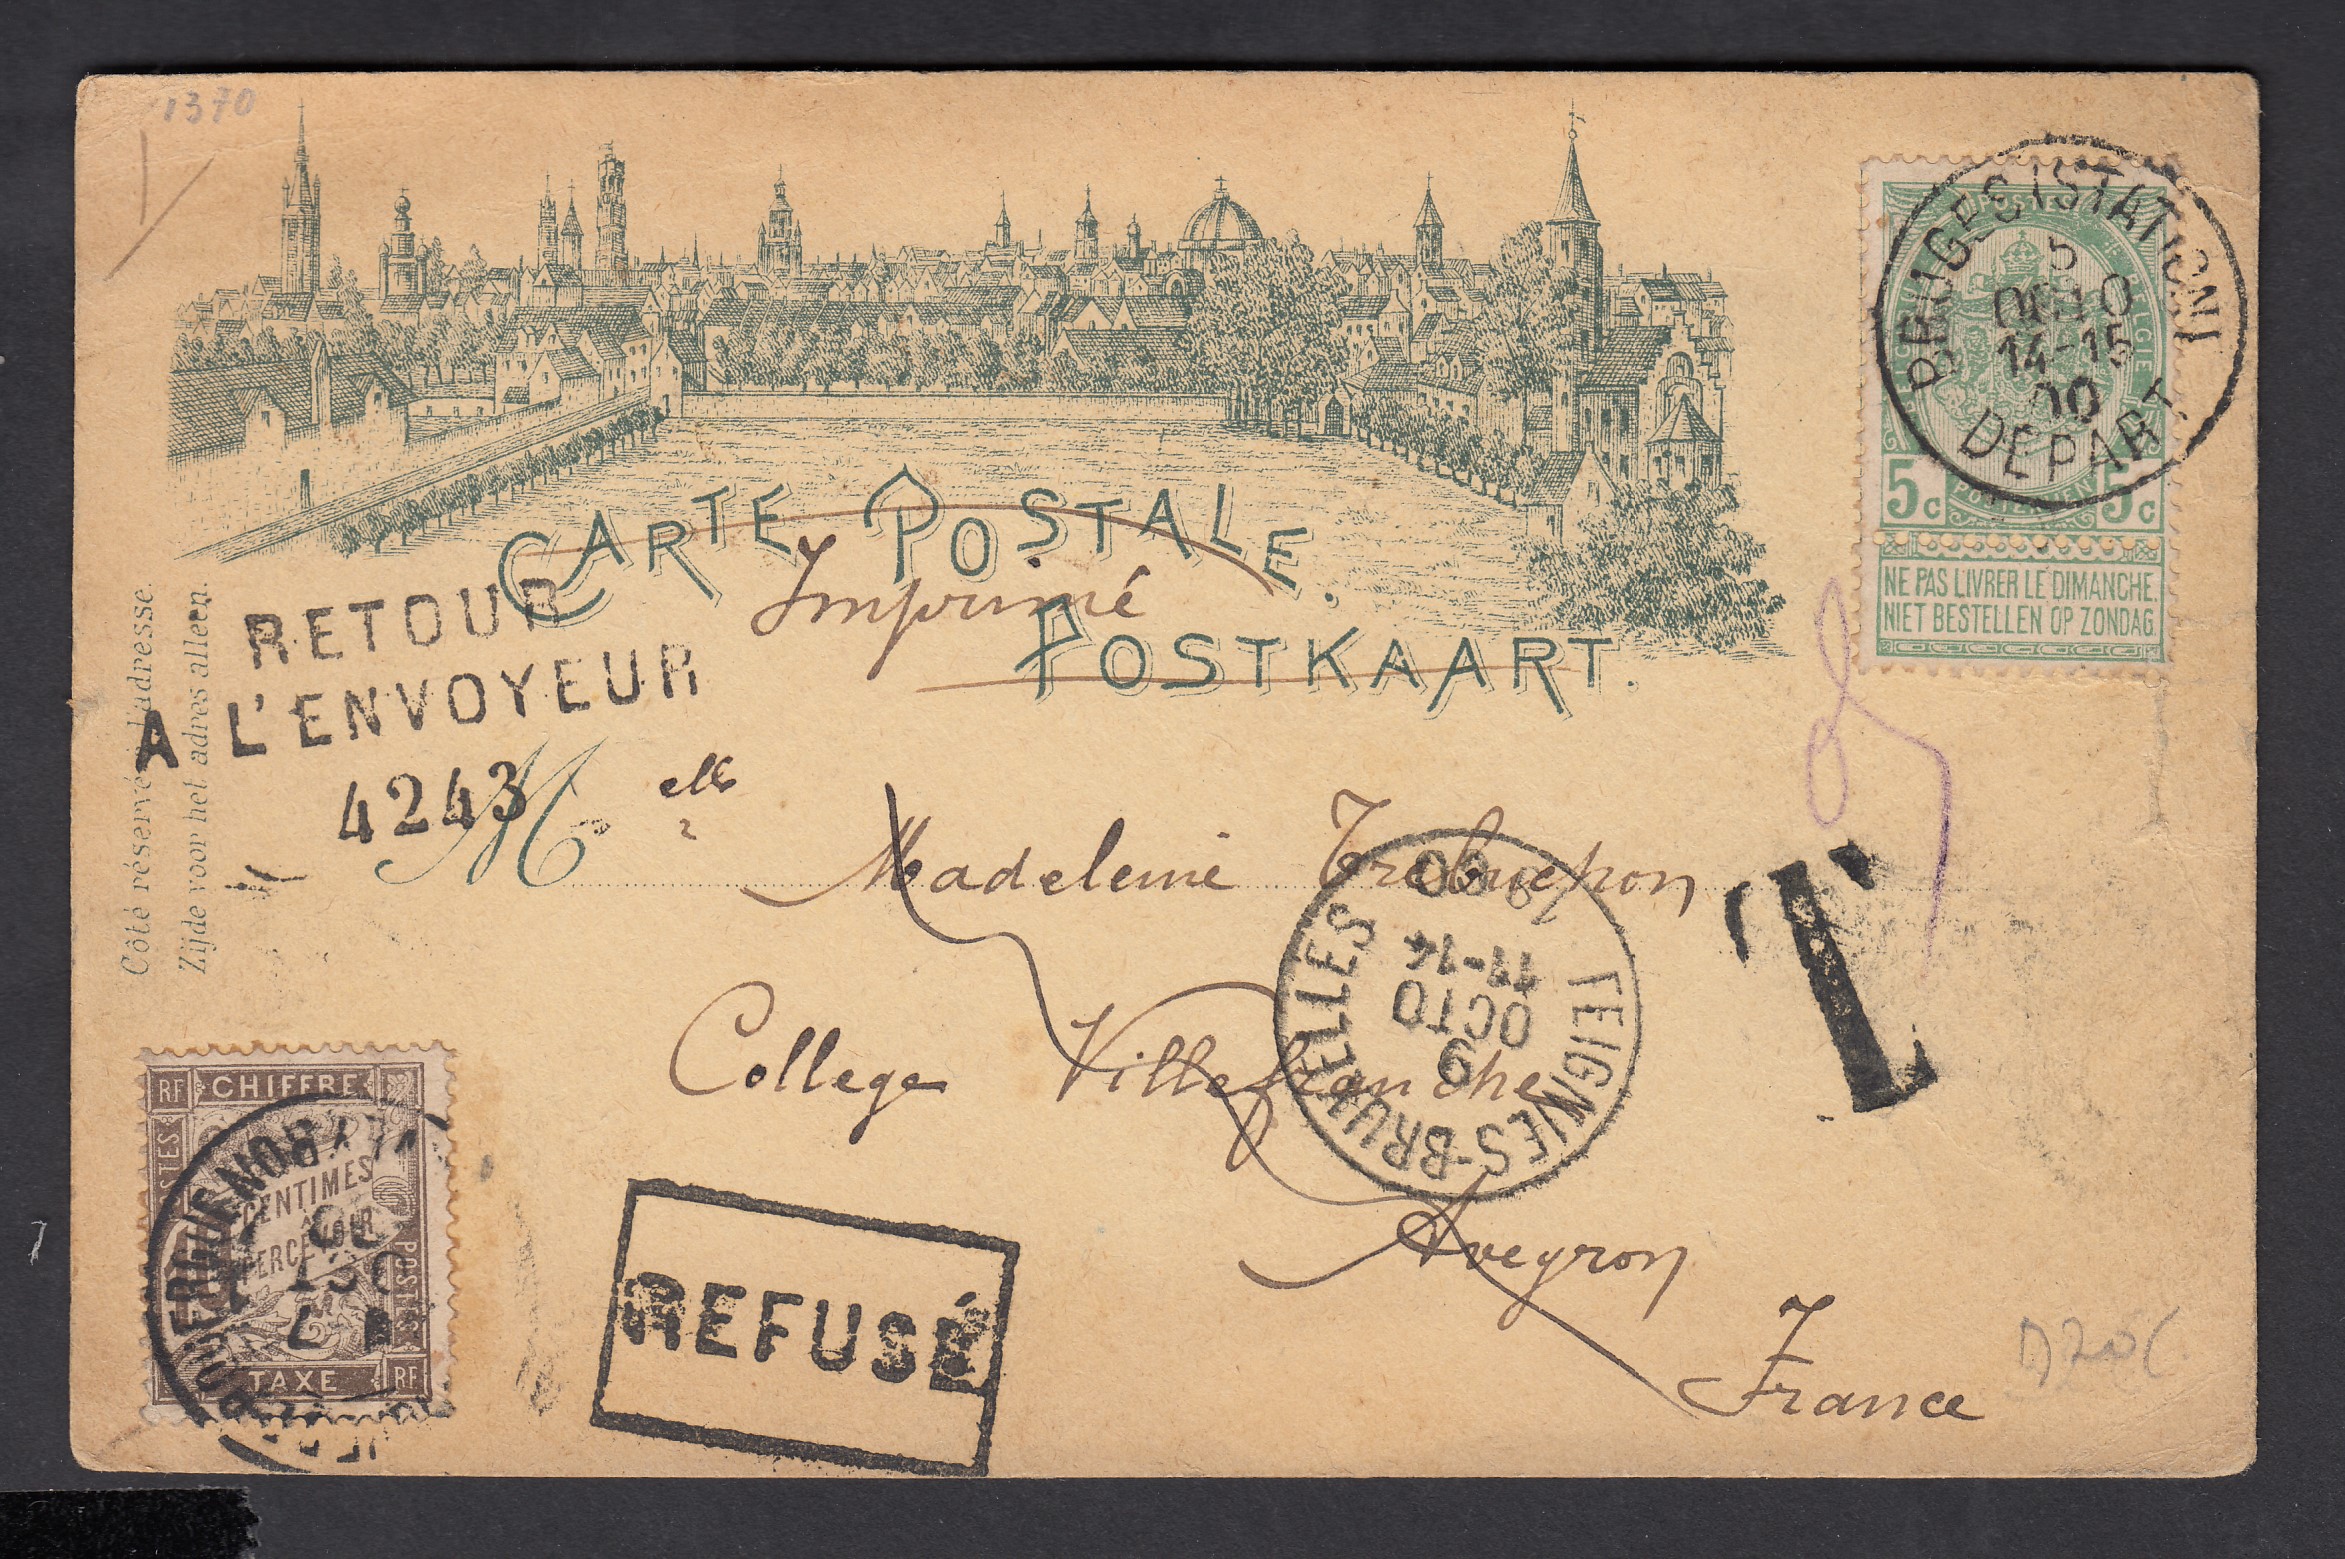 1370
BRUGES (STATION)
5
OCTO
14-15
00
DEPART
5c 5c
NE PAS LIVRER LE DIMANCHE.
NIET BESTELLEN OP ZONDAG
CARTE POSTALE.
Imprimé
POSTKAART.
Côté réservé à l'adresse.
Zijde voor het adres alleen.
RETOUR
A L'ENVOYEUR
4243
Melle Madeleine
College Villefranche
Aveyron
France
T
FEIGNIES-BRUXELLES
9
OCTO
11-14
1900
RF CHIFFRE
POSTES
CENTIMES
À
PERCEVOIR
POSTES
TAXE RF
REFUSÉ